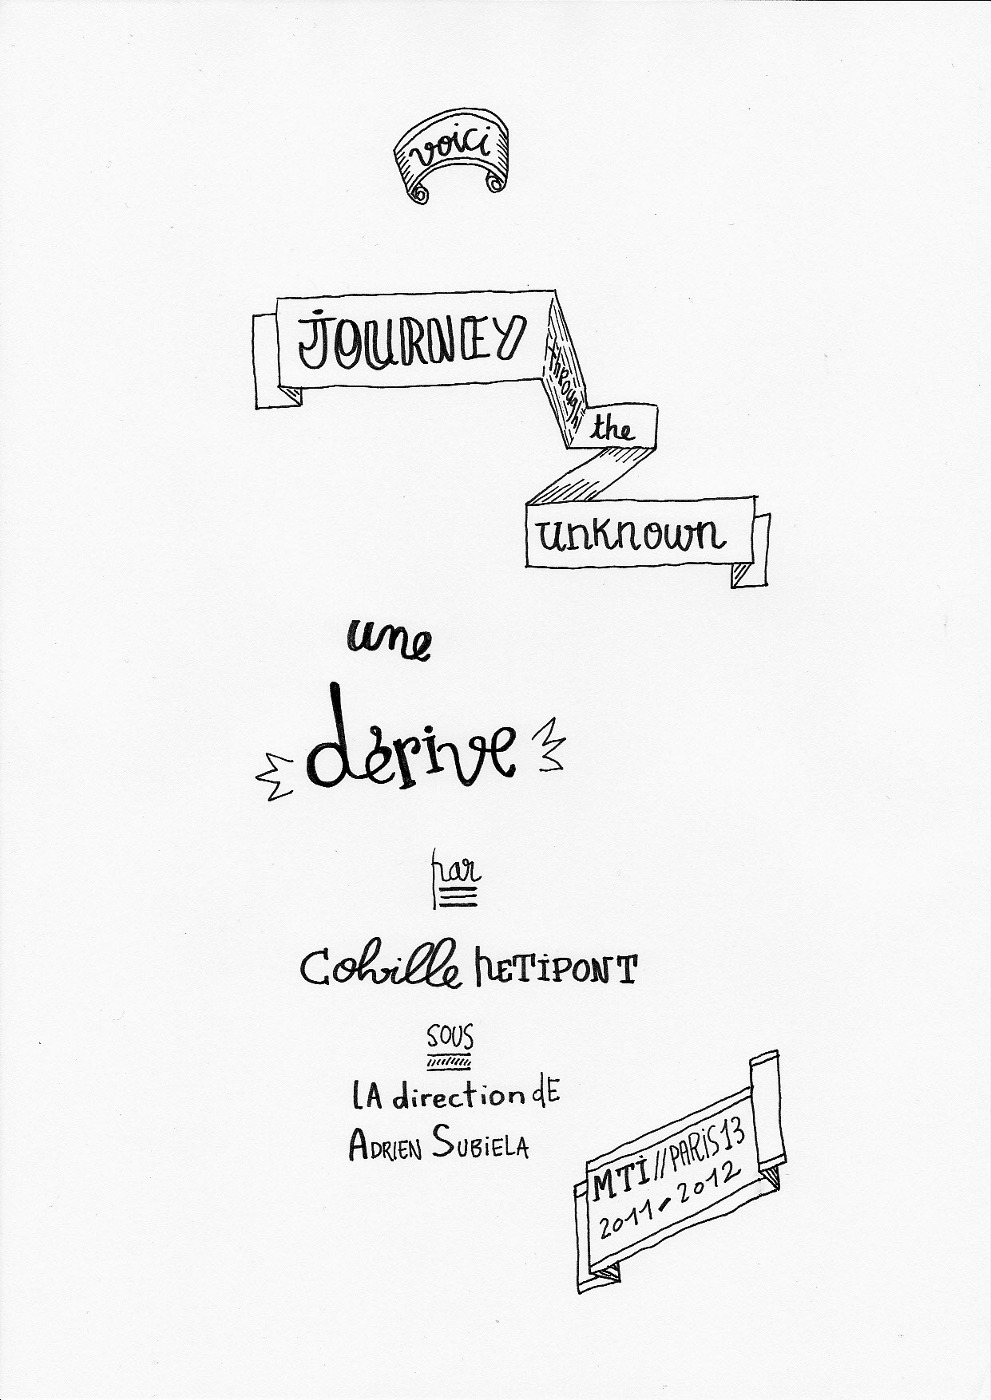 voici
JOURNEY
through
the
unknown
une
dérive
par
Colville PETIPONT
SOUS
LA direction dE
ADRIEN SUBiELA
MTI//PARiS13
2011-2012